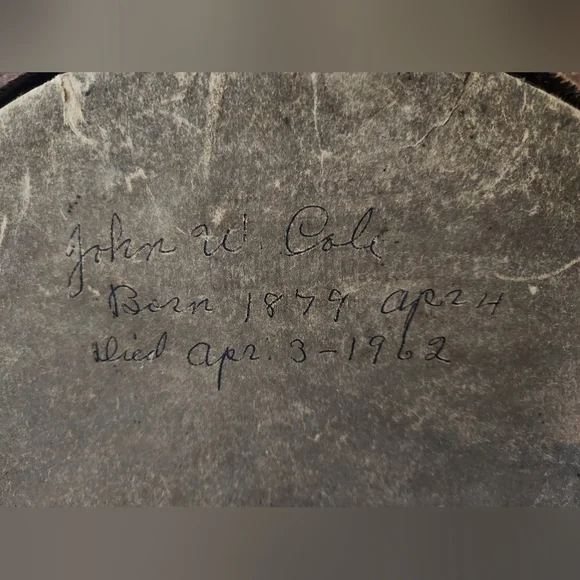 John W. Cole
Born 1879 apr 4
Died apr. 3-1962